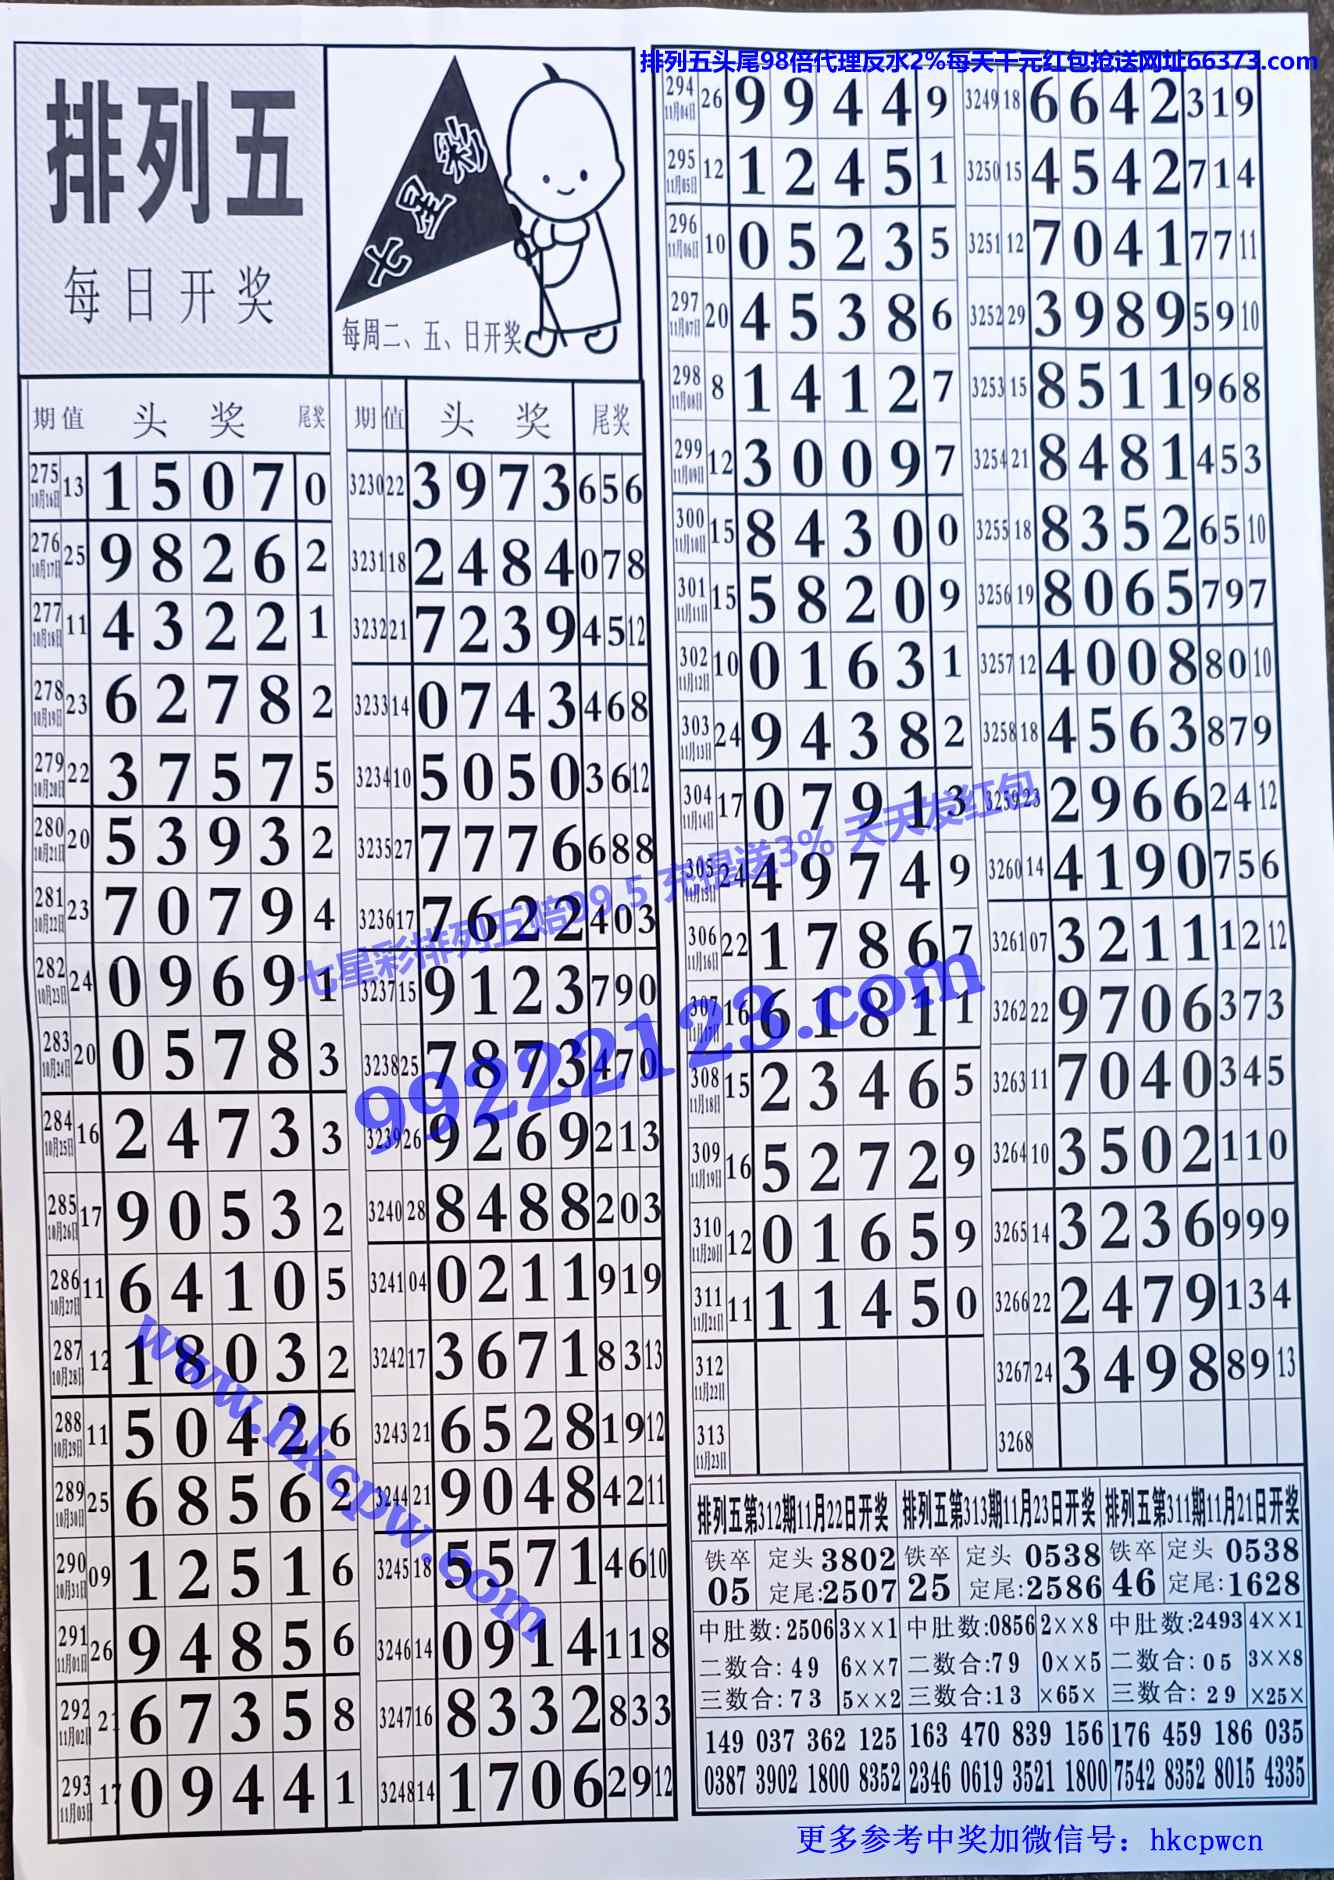 排列五头尾98倍代理反水2%每天千元红包抢送网址66373.com
排列五
每日开奖
七星彩
每周二、五、日开奖
期 值 头 奖 尾奖
275 10月16日 13 1 5 0 7 0
276 10月17日 25 9 8 2 6 2
277 10月18日 11 4 3 2 2 1
278 10月19日 23 6 2 7 8 2
279 10月20日 22 3 7 5 7 5
280 10月21日 20 5 3 9 3 2
281 10月22日 23 7 0 7 9 4
282 10月23日 24 0 9 6 9 1
283 10月24日 20 0 5 7 8 3
284 10月25日 16 2 4 7 3 3
285 10月26日 17 9 0 5 3 2
286 10月27日 11 6 4 1 0 5
287 10月28日 12 1 8 0 3 2
288 10月29日 11 5 0 4 2 6
289 10月30日 25 6 8 5 6 2
290 10月31日 09 1 2 5 1 6
291 11月01日 26 9 4 8 5 6
292 11月02日 21 6 7 3 5 8
293 11月03日 17 0 9 4 4 1
期 值 头 奖 尾奖
3230 22 3 9 7 3 6 5 6
3231 18 2 4 8 4 0 7 8
3232 21 7 2 3 9 4 5 12
3233 14 0 7 4 3 4 6 8
3234 10 5 0 5 0 3 6 12
3235 27 7 7 7 6 6 8 8
3236 17 7 6 2 2 4 0 3
3237 15 9 1 2 3 7 9 0
3238 25 7 8 7 3 4 7 0
3239 26 9 2 6 9 2 1 3
3240 28 8 4 8 8 2 0 3
3241 04 0 2 1 1 9 1 9
3242 17 3 6 7 1 8 3 13
3243 21 6 5 2 8 1 9 12
3244 21 9 0 4 8 4 2 11
3245 18 5 5 7 1 4 6 10
3246 14 0 9 1 4 1 1 8
3247 16 8 3 3 2 8 3 3
3248 14 1 7 0 6 2 9 12
294 11月04日 26 9 9 4 4 9
295 11月05日 12 1 2 4 5 1
296 11月06日 10 0 5 2 3 5
297 11月07日 20 4 5 3 8 6
298 11月08日 8 1 4 1 2 7
299 11月09日 12 3 0 0 9 7
300 11月10日 15 8 4 3 0 0
301 11月11日 15 5 8 2 0 9
302 11月12日 10 0 1 6 3 1
303 11月13日 24 9 4 3 8 2
304 11月14日 17 0 7 9 1 3
305 11月15日 24 4 9 7 4 9
306 11月16日 22 1 7 8 6 7
307 11月17日 16 6 1 8 1 1
308 11月18日 15 2 3 4 6 5
309 11月19日 16 5 2 7 2 9
310 11月20日 12 0 1 6 5 9
311 11月21日 11 1 1 4 5 0
312 11月22日
313 11月23日
3249 18 6 6 4 2 3 1 9
3250 15 4 5 4 2 7 1 4
3251 12 7 0 4 1 7 7 11
3252 29 3 9 8 9 5 9 10
3253 15 8 5 1 1 9 6 8
3254 21 8 4 8 1 4 5 3
3255 18 8 3 5 2 6 5 10
3256 19 8 0 6 5 7 9 7
3257 12 4 0 0 8 8 0 10
3258 18 4 5 6 3 8 7 9
3259 23 2 9 6 6 2 4 12
3260 14 4 1 9 0 7 5 6
3261 07 3 2 1 1 1 2 12
3262 22 9 7 0 6 3 7 3
3263 11 7 0 4 0 3 4 5
3264 10 3 5 0 2 1 1 0
3265 14 3 2 3 6 9 9 9
3266 22 2 4 7 9 1 3 4
3267 24 3 4 9 8 8 9 13
3268
七星彩排列五赔99.5 充提送3% 天天发红包
99222123.com
www.hkcpw.com
排列五第312期11月22日开奖 排列五第313期11月23日开奖 排列五第311期11月21日开奖
铁卒 定头 3802 铁卒 定头 0538 铁卒 定头 0538
05 定尾:2507 25 定尾:2586 46 定尾:1628
中肚数:2506 3××1 中肚数:0856 2××8 中肚数:2493 4××1
二数合:49 6××7 二数合:79 0××5 二数合:05 3××8
三数合:73 5××2 三数合:13 ×65× 三数合:29 ×25×
149 037 362 125 163 470 839 156 176 459 186 035
0387 3902 1800 8352 2346 0619 3521 1800 7542 8352 8015 4335
更多参考中奖加微信号：hkcpwcn